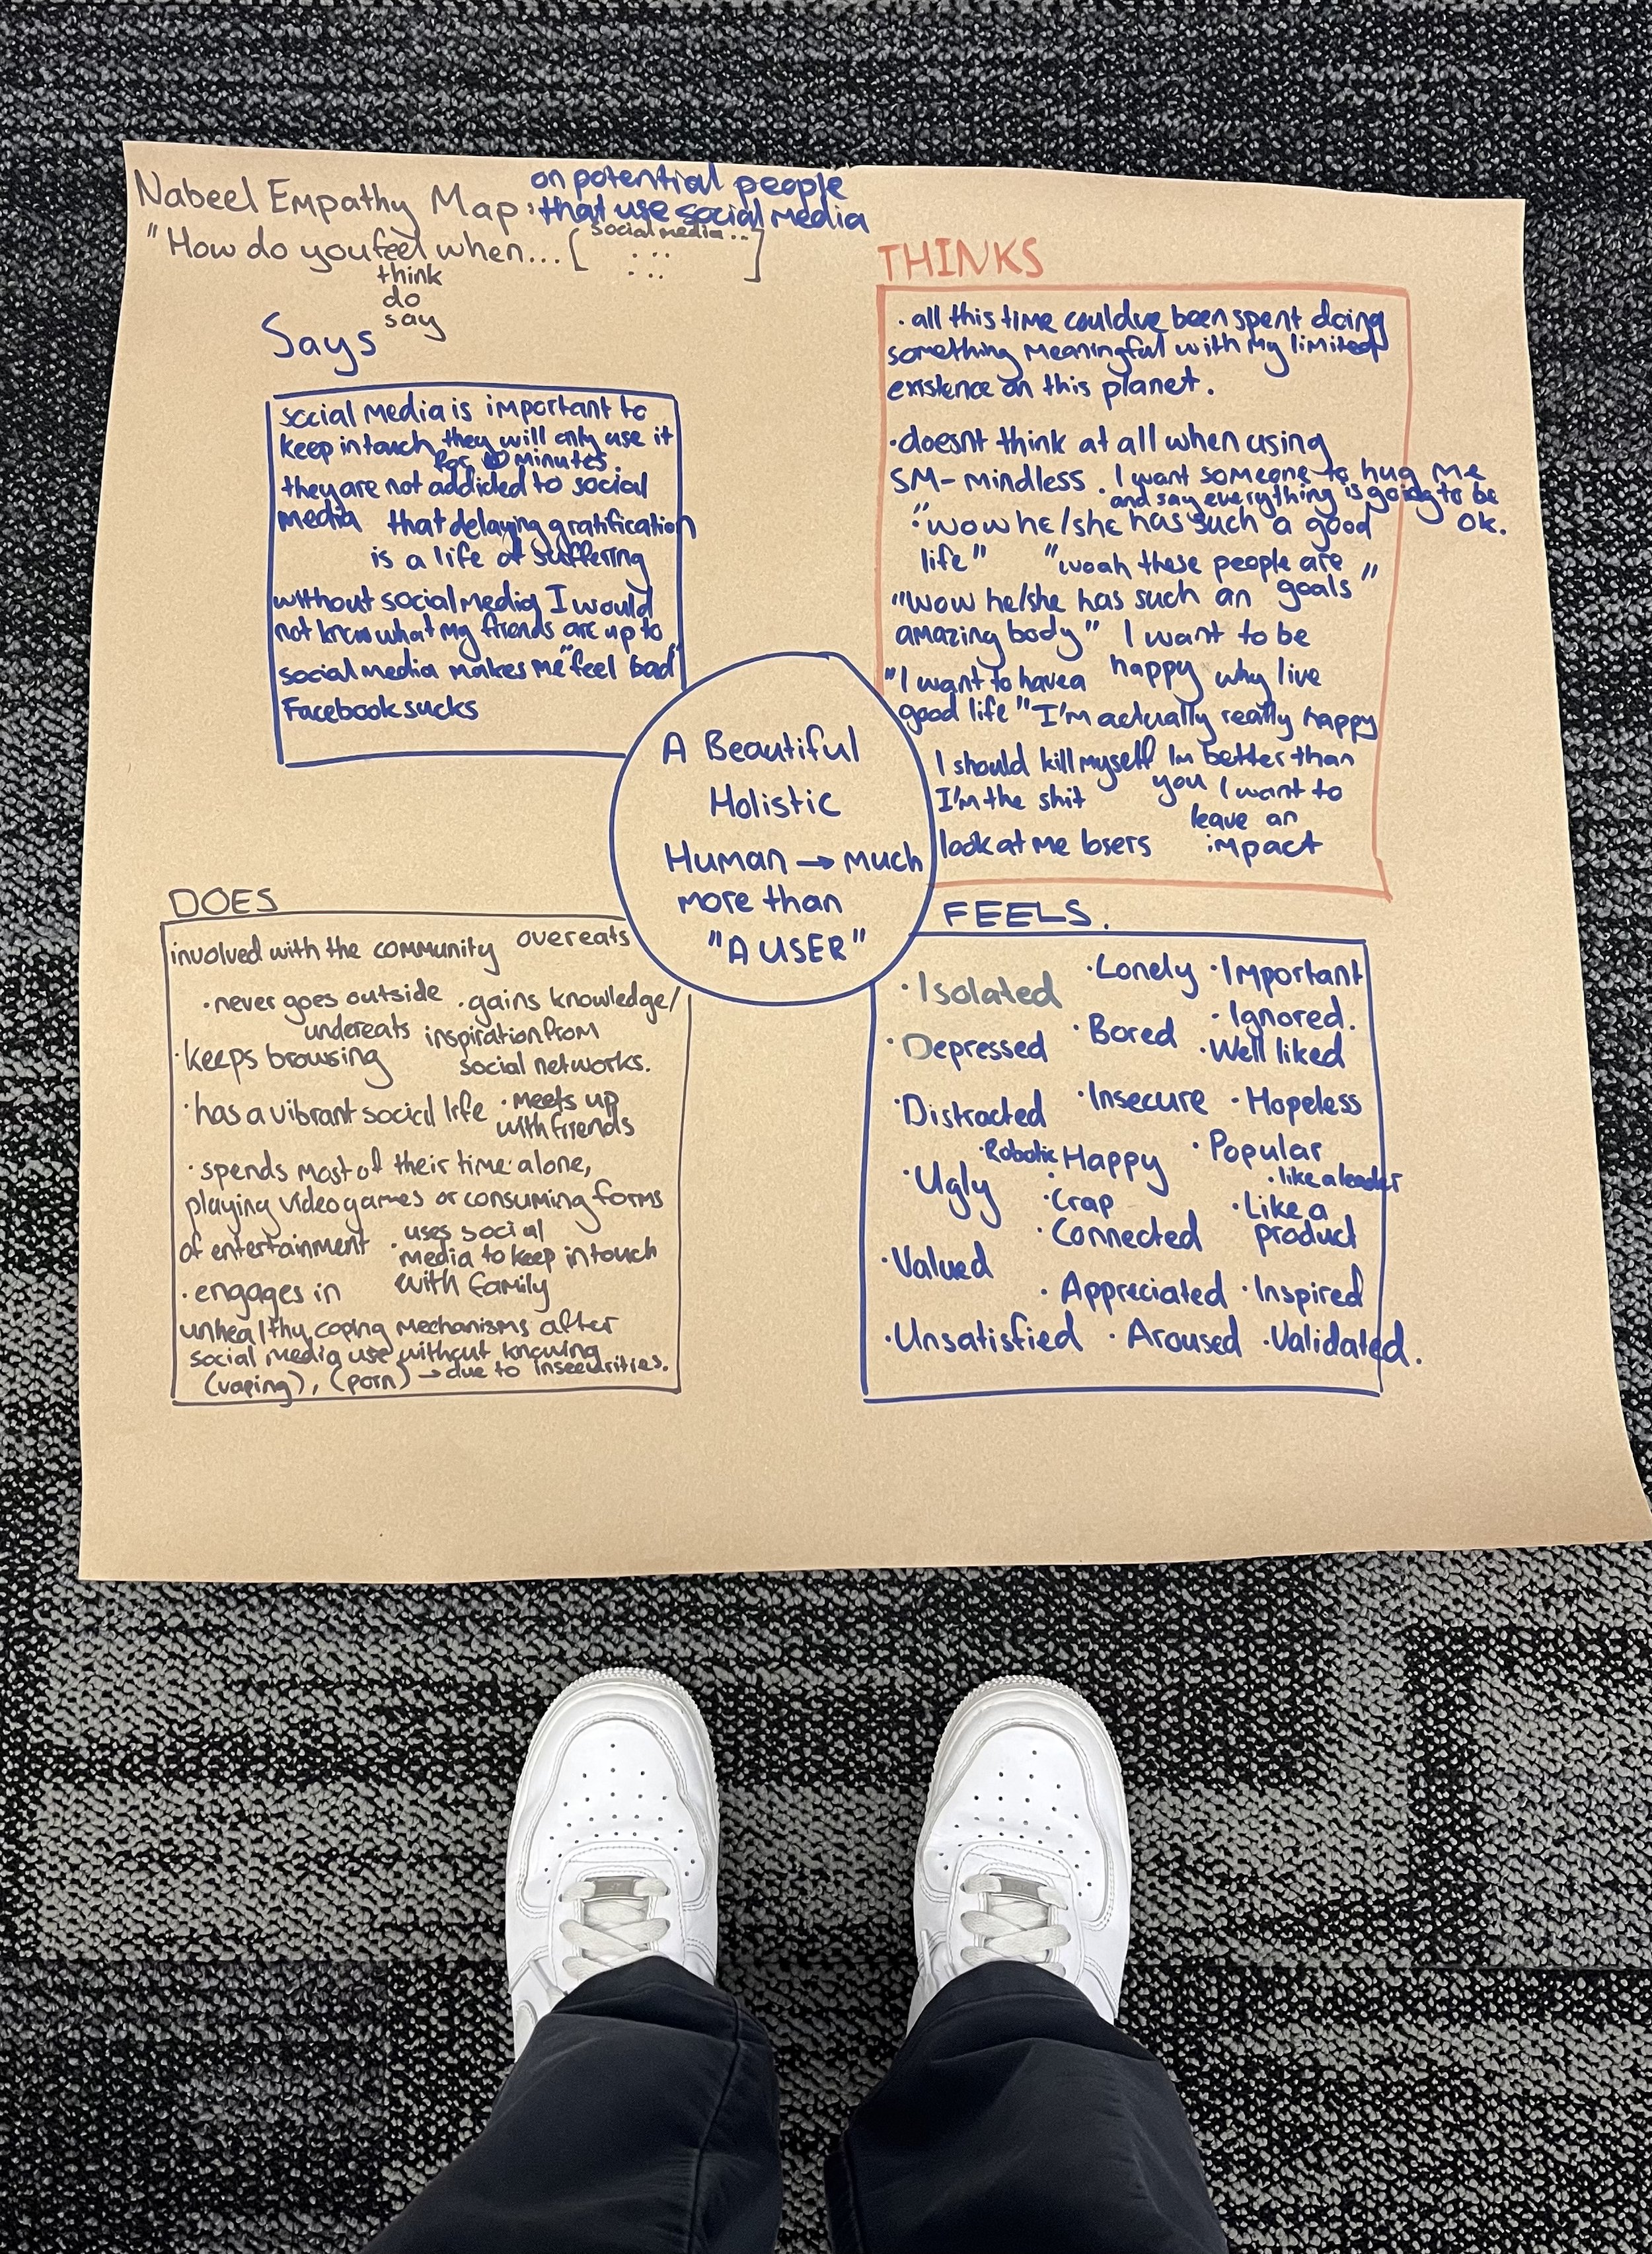 Nabeel Empathy Map: on potential people
that use social media
"How do you feel when... [ social media... ]
think
do
say
Says
social media is important to
keep in touch they will only use it
for 10 minutes.
they are not addicted to social
media that delaying gratification
is a life of suffering
without social media I would
not know what my friends are up to
social media makes me "feel bad"
Facebook sucks
THINKS
· all this time couldve been spent doing
something meaningful with my limited
existence on this planet.
· doesnt think at all when using
SM - mindless . I want someone to hug me
and say everything is going to be
ok.
· "wow he/she has such a good
life" "woah these people are
goals"
"Wow he/she has such an
amazing body" I want to be
happy why live
"I want to have a
good life" I'm actually really happy
I should kill myself Im better than
you
I'm the shit I want to
leave an
impact
look at me losers
A Beautiful
Holistic
Human → much
more than
"A USER"
DOES
involved with the community overeats
· never goes outside · gains knowledge/
undereats inspiration from
· keeps browsing social networks.
· has a vibrant social life · meets up
with friends
· spends most of their time alone,
playing video games or consuming forms
of entertainment · uses social
media to keep in touch
with family
· engages in
unhealthy coping mechanisms after
social media use without knowing
(vaping), (porn) → due to insecurities.
FEELS.
· Isolated · Lonely · Important
· Ignored.
· Depressed · Bored · Well liked
· Distracted · Insecure · Hopeless
· Robotic · Happy · Popular
· like a leader
· Ugly · Crap · Like a
product
· Connected
· Valued
· Appreciated · Inspired
· Unsatisfied · Aroused · Validated.